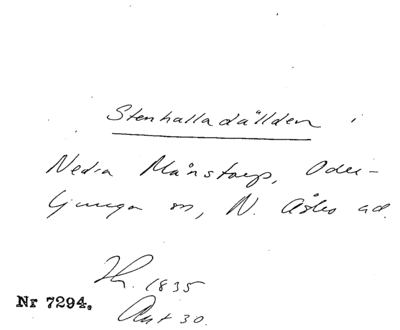 Stenhalladällden i
Nedra Månstorp, Oder-
ljunga sn, N. Åsbo hd.
1835
Nr 7294.
Ant 30.